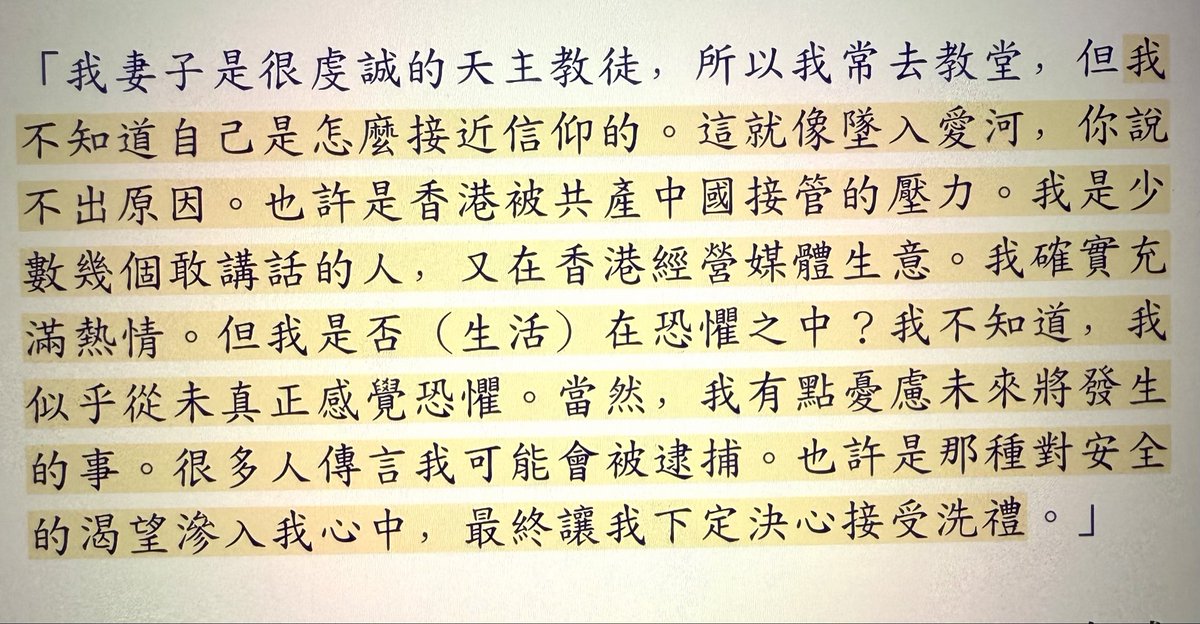 「我妻子是很虔誠的天主教徒，所以我常去教堂，但我
不知道自己是怎麼接近信仰的。這就像墜入愛河，你說
不出原因。也許是香港被共產中國接管的壓力。我是少
數幾個敢講話的人，又在香港經營媒體生意。我確實充
滿熱情。但我是否（生活）在恐懼之中？我不知道，我
似乎從未真正感覺恐懼。當然，我有點憂慮未來將發生
的事。很多人傳言我可能會被逮捕。也許是那種對安全
的渴望滲入我心中，最終讓我下定決心接受洗禮。」